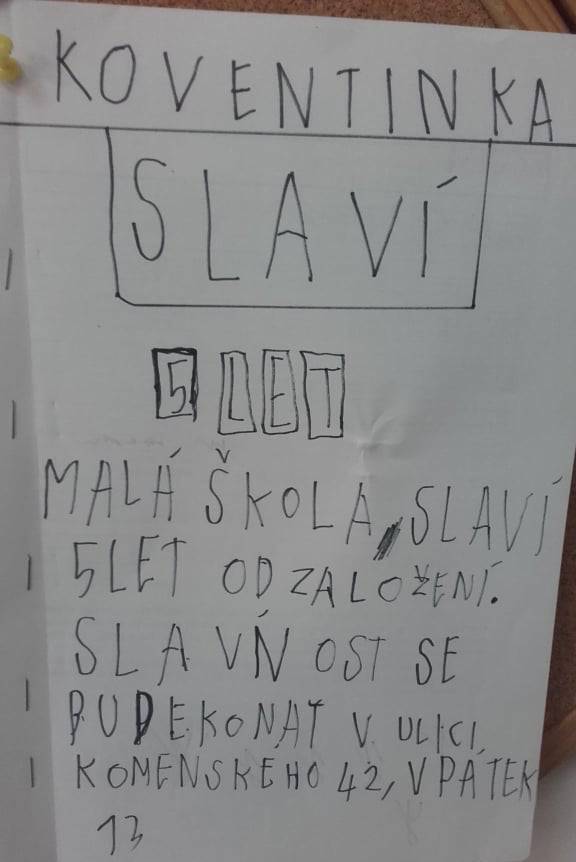 KOVENTINKA
SLAVÍ
5 LET
MALÁ ŠKOLA, SLAVÍ
5LET OD ZALOŽENÍ.
SLAVŇOST SE
BUDE KONAT V ULICI
KOMENSKÉHO 42, V PÁTEK
13